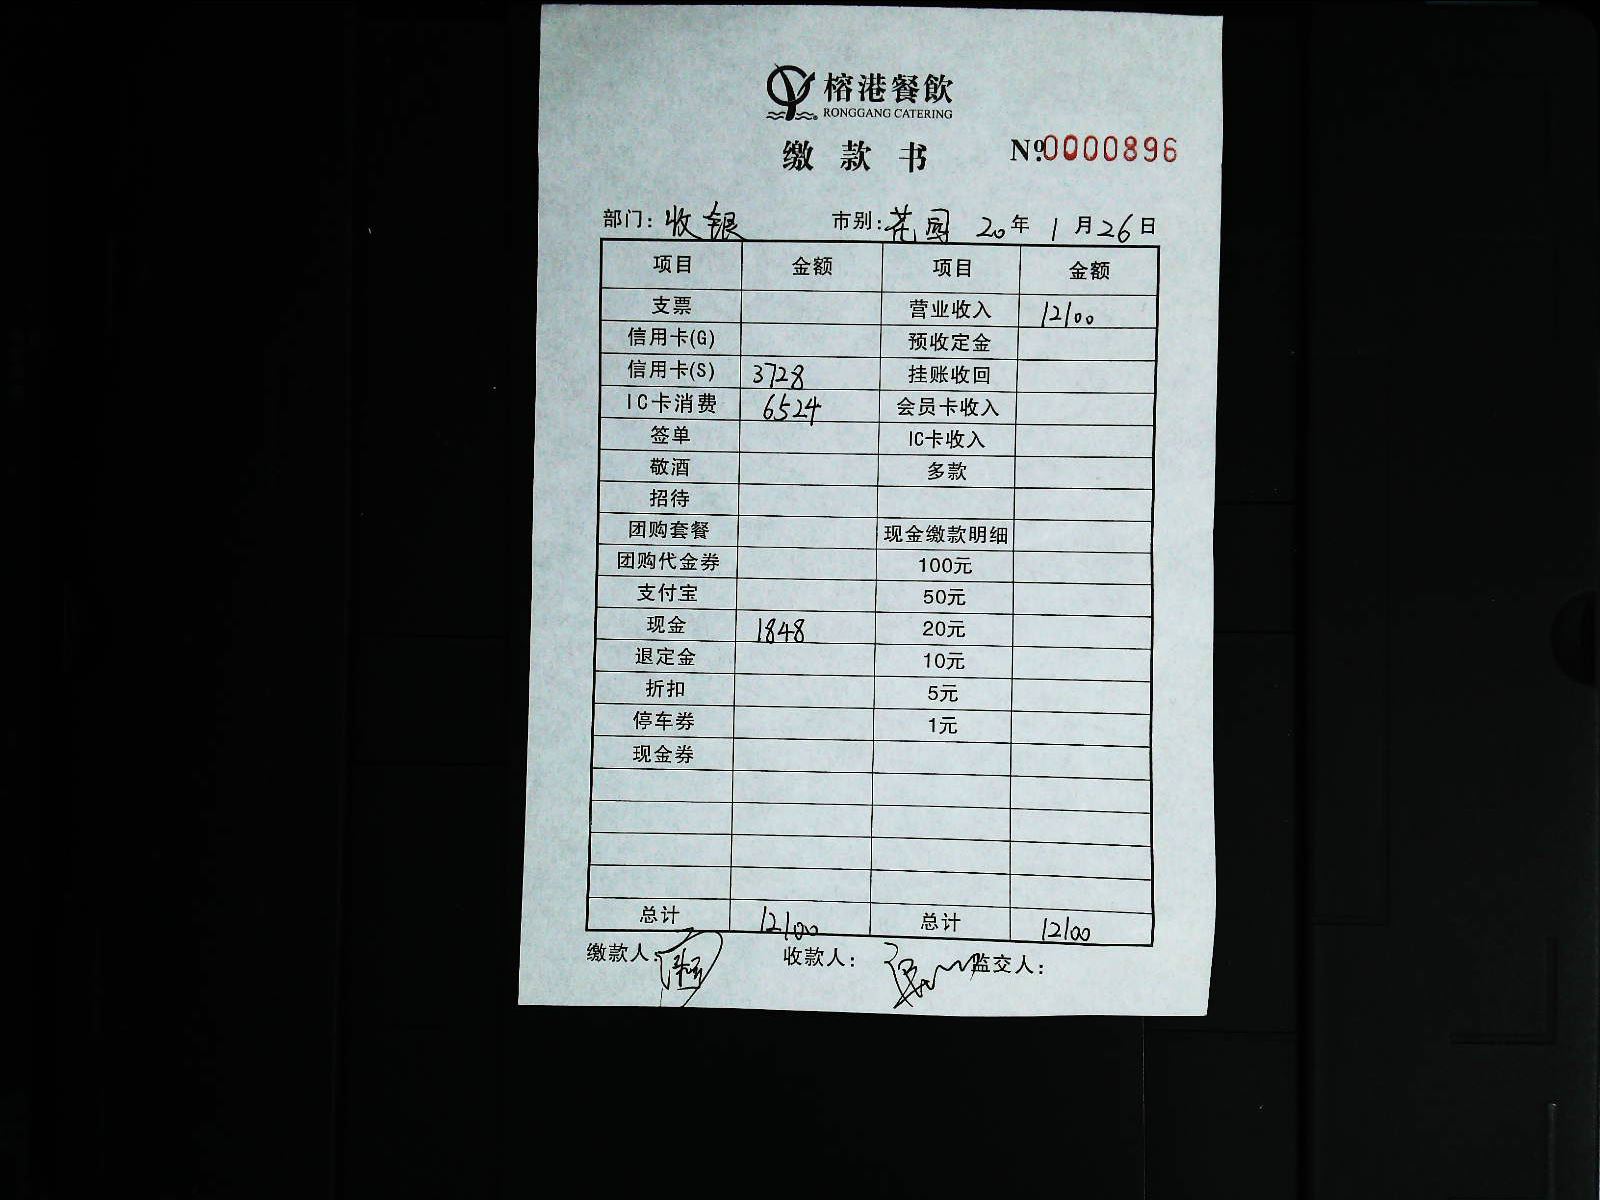 榕港餐飲
RONGGANG CATERING
缴款书 №0000896
部门：收银 市别：花园 20年1月26日
项目 金额 项目 金额
支票 营业收入 12100
信用卡(G) 预收定金
信用卡(S) 3728 挂账收回
IC卡消费 6524 会员卡收入
签单 IC卡收入
敬酒 多款
招待
团购套餐 现金缴款明细
团购代金券 100元
支付宝 50元
现金 1848 20元
退定金 10元
折扣 5元
停车券 1元
现金券
总计 12100 总计 12100
缴款人： 收款人： 监交人：